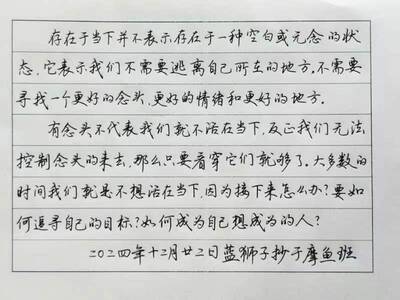 存在于当下并不表示存在于一种空白或无念的状
态，它表示我们不需要逃离自己所在的地方。不需要
寻找一个更好的念头，更好的情绪和更好的地方。
有念头不代表我们就不活在当下，反正我们无法
控制念头的来去，那么只要看穿它们就够了。大多数的
时间我们就是不想活在当下，因为接下来怎么办？要如
何追寻自己的目标？如何成为自己想成为的人？
二〇二四年十二月廿二日蓝狮子抄于摩鱼班